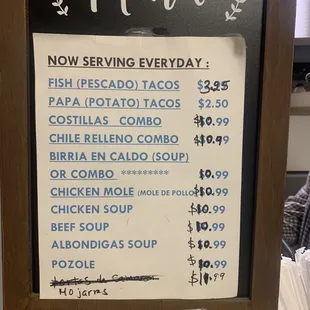 NOW SERVING EVERYDAY :
FISH (PESCADO) TACOS $3.25
PAPA (POTATO) TACOS $2.50
COSTILLAS COMBO $10.99
CHILE RELLENO COMBO $10.99
BIRRIA EN CALDO (SOUP)
OR COMBO ********* $10.99
CHICKEN MOLE (MOLE DE POLLO) $10.99
CHICKEN SOUP $10.99
BEEF SOUP $10.99
ALBONDIGAS SOUP $10.99
POZOLE $10.99
Mojarras $11.99